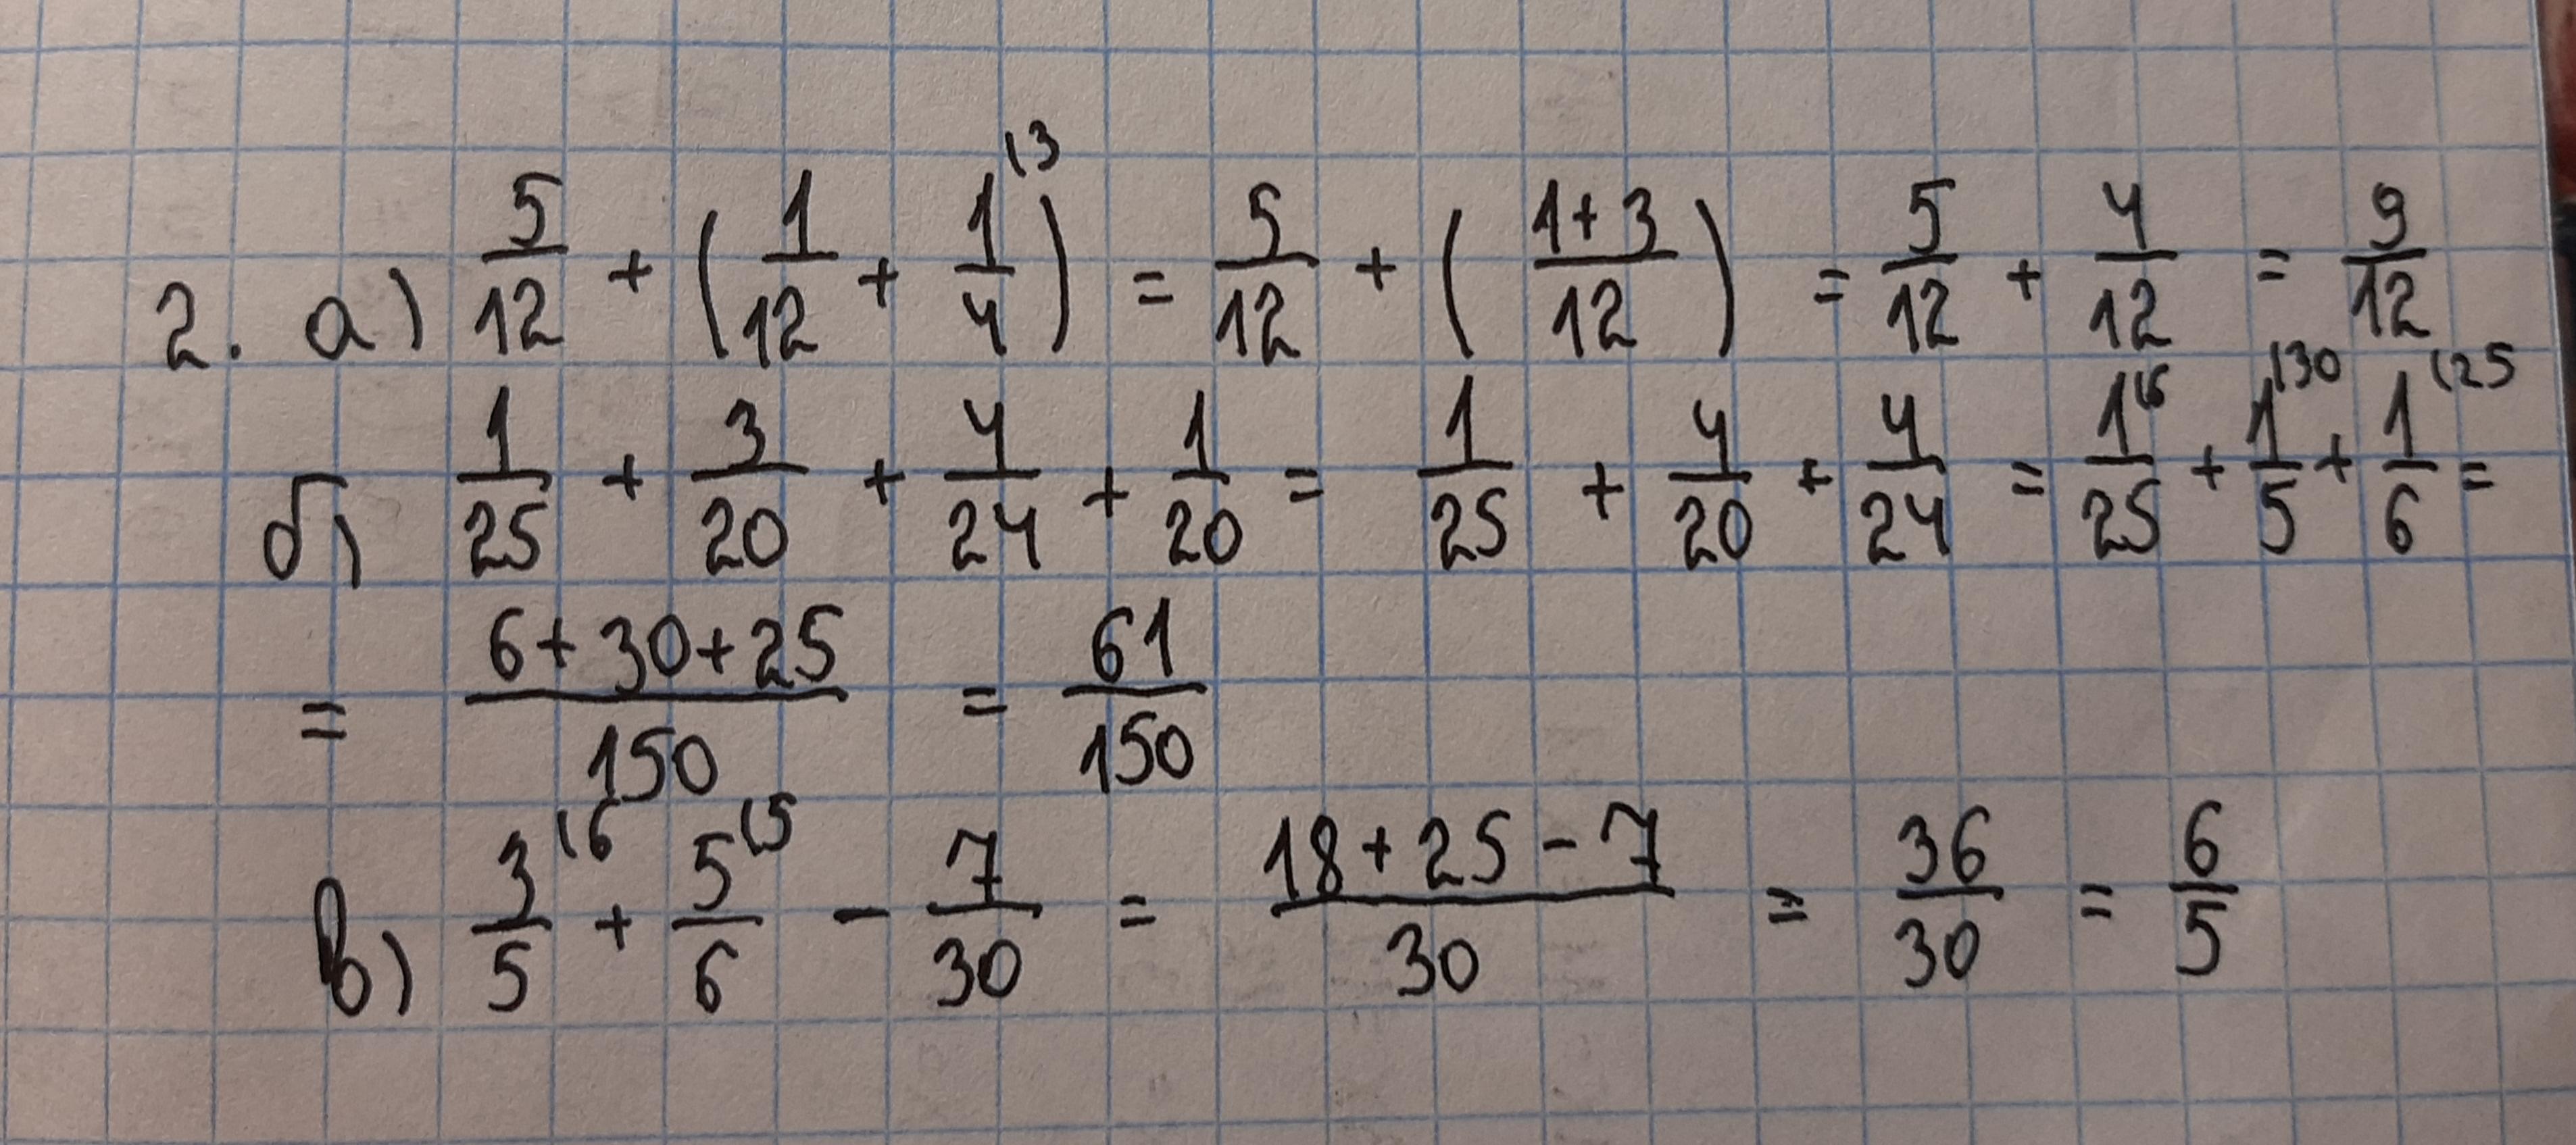 2. а) 5/12 + (1/12 + 1/4 (3) = 5/12 + (1+3/12) = 5/12 + 4/12 = 9/12
б) 1/25 + 3/20 + 4/24 + 1/20 = 1/25 + 4/20 + 4/24 = 1/25 (6 + 1/5 (30 + 1/6 (25 =
= 6+30+25/150 = 61/150
в) 3/5 (6 + 5/6 (5 - 7/30 = 18+25-7/30 = 36/30 = 6/5